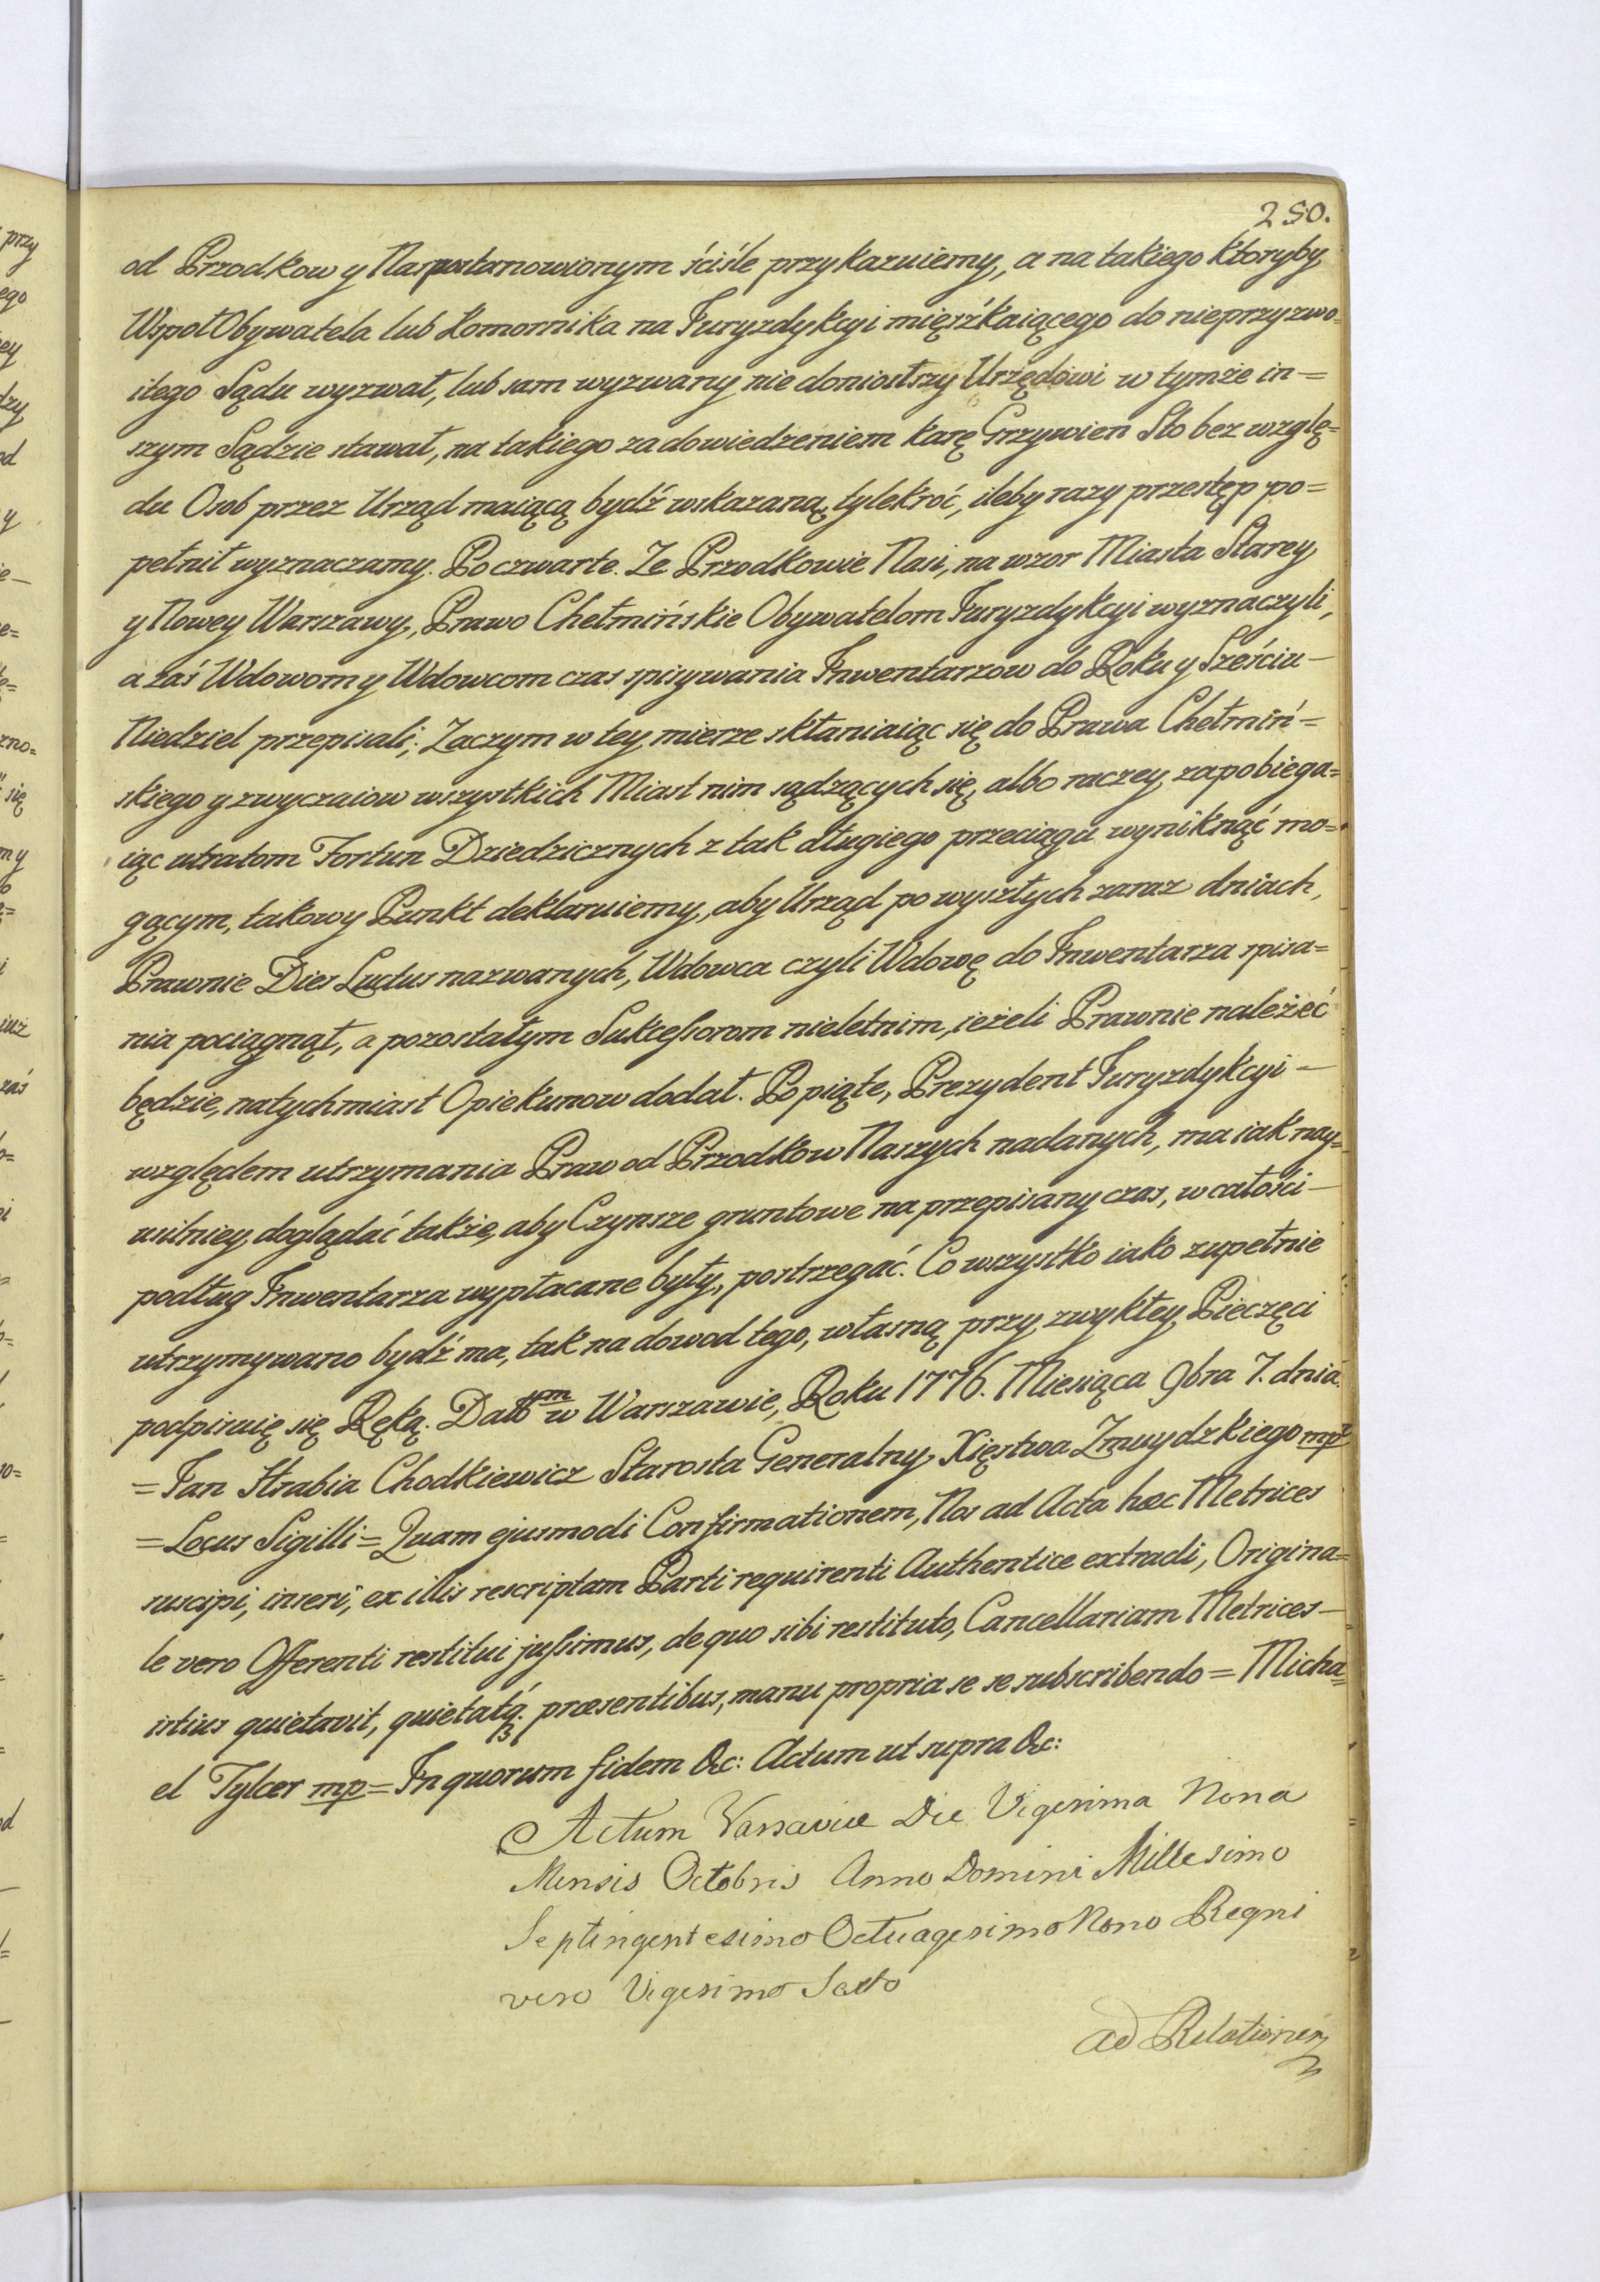 250.
od Przodkow y Nas postanowionym ściśle przykazuiemy, a na takiego ktoryby
WspołObywatela lub Komornika na Juryzdykcyi mięszkaiącego do nieprzyzwo=
itego Sądu wyzwał, lub sam wyzwany nie doniosłszy Urzędowi w tymże in=
szym Sądzie stawał, na takiego za dowiedzeniem karę Grzywien Sto bez wzglę=
du Osob przez Urząd maiącą bydź wskazaną, tylekroć, ileby razy przestęp po=
pełnił wyznaczamy. Po czwarte. Ze Przodkowie Nasi, na wzor Miasta Starey
y Nowey Warszawy, Prawo Chełmińskie Obywatelom Juryzdykcyi wyznaczyli,
a zaś Wdowom y Wdowcom czas spisywania Inwentarzow do Roku y Sześciu—
Niedziel przepisali; Zaczym w tey mierze skłaniaiąc się do Prawa Chełmiń=
skiego y zwyczaiow wszystkich Miast nim sądzących się, albo raczey zapobiega=
iąc utratom Fortun Dziedzicznych z tak długiego przeciągu wyniknąć mo=
gącym, takowy Punkt deklaruiemy, aby Urząd po wyszłych zaraz dniach,
Prawnie Dies Luctus nazwanych, Wdowca czyli Wdowę do Inwentarza spisa=
nia pociągnął, a pozostałym Sukcessorom nieletnim, ieżeli Prawnie należeć
będzie, natychmiast Opiekunow dodał. Po piąte, Prezydent Juryzdykcyi—
względem utrzymania Praw od Przodkow Naszych nadanych, ma iak nay=
usilniey doglądać także, aby Czynsze gruntowe na przepisany czas, w całości—
podług Inwentarza wypłacane były, postrzegać. Co wszystko iako zupełnie
utrzymywano bydź ma, tak na dowod tego, własną przy zwykłey Pieczęci
podpisuię się Ręką. Datt͞m w Warszawie, Roku 1776. Miesiąca 9bra 7. dnia.
=Jan Hrabia Chodkiewicz Starosta Generalny Xięstwa Zmuydzkiego mp
=Locus Sigilli= Quam ejusmodi Confirmationem, Nos ad Acta hæc Metrices
suscipi, inseri, ex illis rescriptam Parti requirenti Authentice extradi, Origina=
le vero Offerenti restitui jussimus, de quo sibi restituto, Cancellariam Metrices—
istius quietavit, quietatq3. præsentibus, manu propria se se subscribendo = Micha=
el Tylcer mp = In quorum fidem &c: Actum ut supra &c:
Actum Varsaviæ Die Vigesima Nona
Mensis Octobris Anno Domini Millesimo
Septingentesimo Octuagesimo Nono Regni
vero Vigesimo Sexto
Ad Relationem